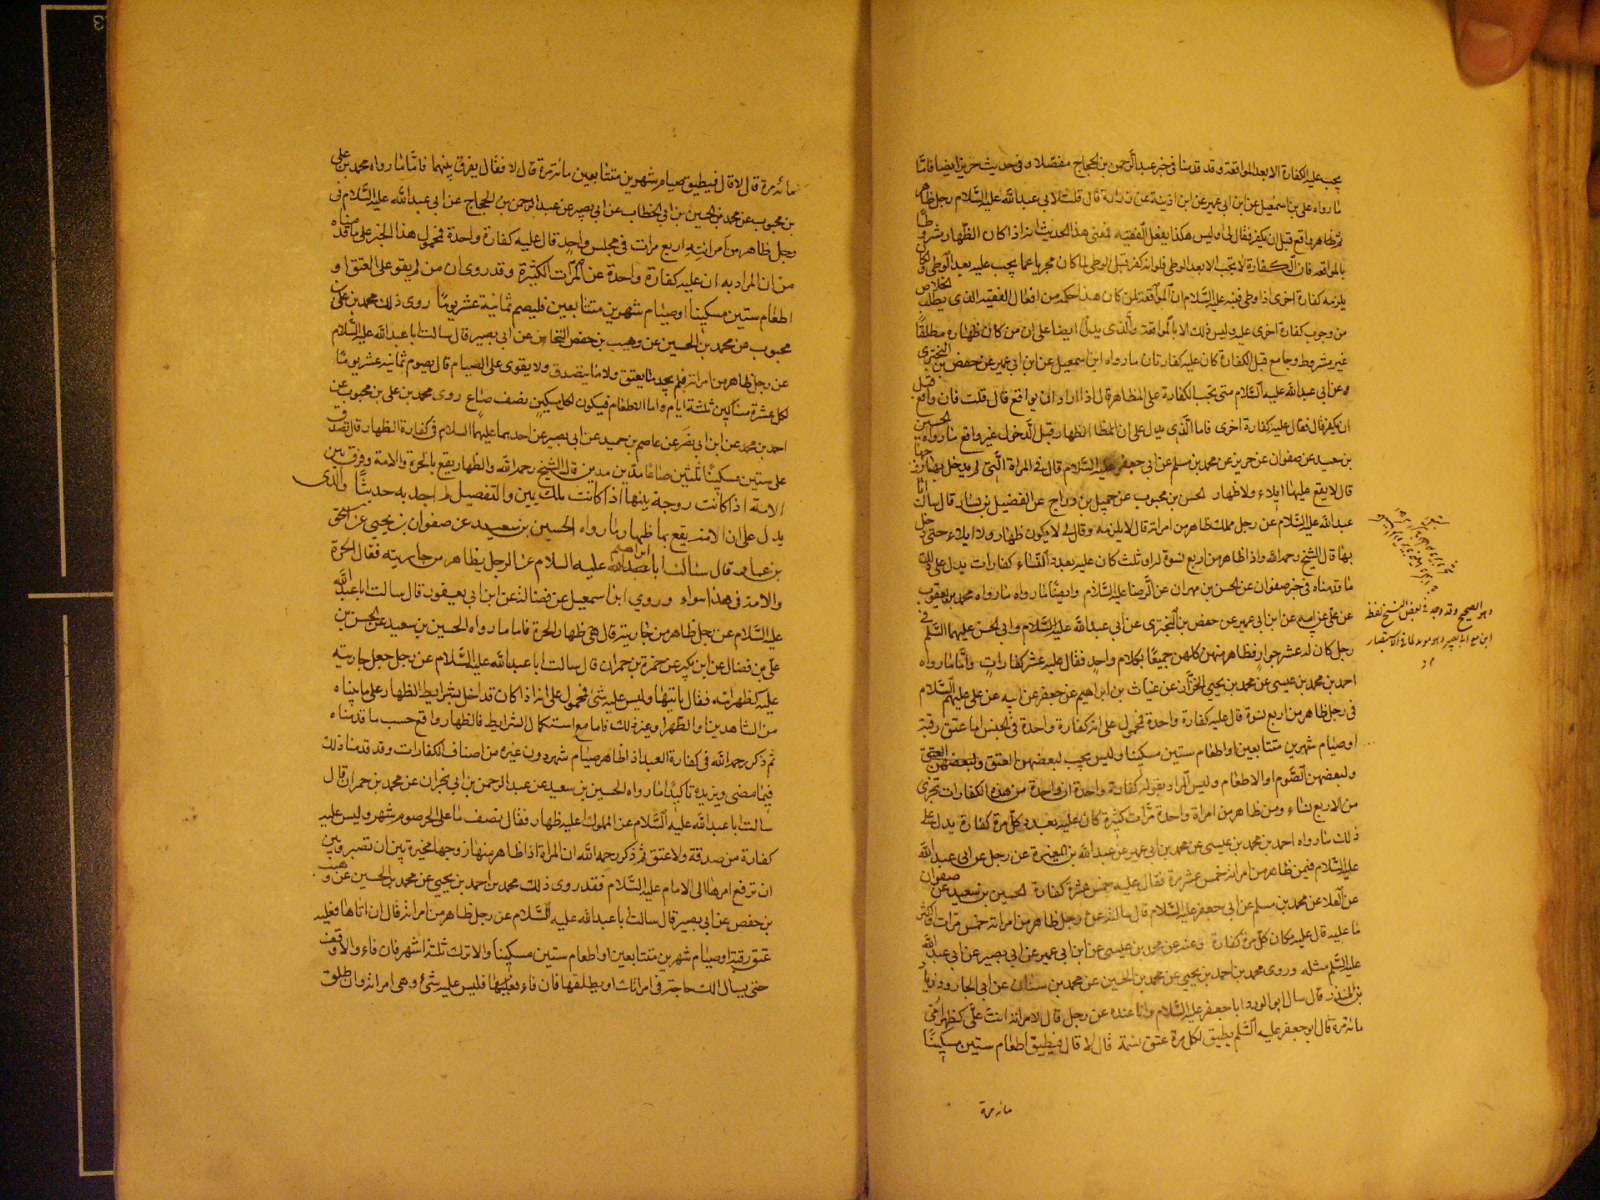 يجب عليه الكفارة الا بعد المواقعة وقد قدمنا في خبر عبد الرحمن بن الحجاج مفصلا وفي حديث حريز ايضا فاما
ما رواه علي بن اسمعيل عن ابن ابي عمير عن ابن اذينة عن زرارة قال قلت لابي عبد الله عليه السلام رجل ظاهر
ثم واقع قبل ان يكفر فقال لي اوليس هكذا يفعل الفقيه فمعنى هذا الحديث انه اذا كان الظهار مشروطا
بالمواقعة فان الكفارة لا تجب الا بعد الوطي فلو انه كفر قبل الوطي لما كان مجزيا عما يجب عليه بعد الوطي ولكان
يلزمه كفارة اخرى اذا وطي فنبه عليه السلام ان المواقعة لمن كان هذا حكمه من افعال الفقيه الذي يطلب الخلاص
من وجوب كفارة اخرى عليه وليس ذلك الا بالمواقعة والذي يدل ايضا على ان من كان ظهاره مطلقا
غير مشروط وجامع قبل الكفارة كان عليه كفارتان ما رواه ابن اسمعيل عن ابن ابي عمير عن حفص بن البختري
عن ابي عبد الله عليه السلام متى تجب الكفارة على المظاهر قال اذا اراد ان يواقع قال قلت فان واقع قبل
ان يكفر قال فقال عليه كفارة اخرى فاما الذي يدل على ان الظهار قبل الدخول غير واقع ما رواه الحسين
بن سعيد عن صفوان عن حريز عن محمد بن مسلم عن ابي جعفر عليه السلام قال في المراة التي لم يدخل بها زوجها
قال لا يقع عليها ايلاء ولا ظهار الحسن بن محبوب عن جميل بن دراج عن الفضيل بن يسار قال سالت ابا
عبد الله عليه السلام عن رجل مملك ظاهر من امراته قال لا يلزمه وقال لي لا يكون ظهار ولا ايلاء حتى يدخل
بها قال الشيخ رحمه الله واذا ظاهر من اربع نسوة له او ثلث كان عليه بعدة النساء كفارات يدل على ذلك
ما قدمناه في خبر صفوان عن الحسين بن مهران عن الرضا عليه السلام وايضا ما رواه محمد بن يعقوب
عن علي عن ابيه عن ابن ابي عمير عن حفص بن البختري عن ابي عبد الله عليه السلام وابي الحسن عليهما السلام في
رجل كان له عشر جوار فظاهر منهن كلهن جميعا بكلام واحد فقال عليه عشر كفارات واما ما رواه
احمد بن محمد بن عيسى عن محمد بن يحيى الخزاز عن غياث بن ابراهيم عن جعفر عن ابيه عن علي عليهم السلام
في رجل ظاهر من اربع نسوة قال عليه كفارة واحدة فمحمول على انه كفارة واحدة في الجنس اما عتق رقبة
او صيام شهرين متتابعين او اطعام ستين مسكينا وليس يجب لبعضهن العتق ولبعضهن
ولبعضهن الصوم او الاطعام وليس المراد بقوله كفارة واحدة ان واحدة من هذه الكفارات تجزي
من الاربع نساء ومن ظاهر من امراة واحدة مرات كثيرة كان عليه بعدد كل مرة كفارة يدل على
ذلك ما رواه احمد بن محمد بن عيسى عن محمد بن ابي عمير عن عبد الله بن المغيرة عن رجل عن ابي عبد الله
عليه السلام فيمن ظاهر من امراته خمس عشرة مرة فقال عليه خمس عشرة كفارة الحسين بن سعيد عن صفوان
عن العلا عن محمد بن مسلم عن ابي جعفر عليه السلام قال سالته عن رجل ظاهر من امراته خمس مرات او اكثر
ما عليه قال عليه مكان كل مرة كفارة وعنه عن محمد بن عيسى عن ابن ابي عمير عن ابي بصير عن ابي عبد الله
عليه السلم مثله وروى محمد بن احمد بن يحيى عن محمد بن الحسين عن محمد بن سنان عن ابي الجارود زياد
بن المنذر قال سال ابو الورد ابا جعفر عليه السلام وانا عنده عن رجل قال لامراته انت علي كظهر امي
مائة مرة قال ابو جعفر عليه السلم يطيق لكل مرة عتق نسمة قال لا قال فيطيق اطعام ستين مسكينا
مائة مرة
وهو الصحيح وقد وجد في بعض النسخ لفظ
مائة مرة قال لا قال فيطيق صيام شهرين متتابعين مائة مرة قال لا فقال يفرق بينهما فاما ما رواه محمد بن علي
بن محبوب عن محمد بن الحسين بن ابي الخطاب عن ابي بصير عن عبد الرحمن بن الحجاج عن ابي عبد الله عليه السلام في
رجل ظاهر من امراته اربع مرات في مجلس واحد قال عليه كفارة واحدة فمحمول هذا الخبر على ما قدمناه
من ان المراد به ان عليه كفارة واحدة عن المرات الكثيرة وقد روي ان من لم يقو على العتق او
اطعام ستين مسكينا او صيام شهرين متتابعين فليصم ثمانية عشر يوما روى ذلك محمد بن علي بن
محبوب عن محمد بن الحسين عن وهيب بن حفص النخاس عن ابي بصير قال سالت ابا عبد الله عليه السلام
عن رجل ظاهر من امراته فلم يجد ما يعتق ولا ما يتصدق ولا يقوى على الصيام قال يصوم ثمانية عشر يوما
لكل عشرة مساكين ثلثة ايام واما الاطعام فيكون لكل مسكين نصف صاع روى محمد بن علي بن محبوب عن
احمد بن محمد عن ابن ابي نصر عن عاصم بن حميد عن ابي بصير عن احدهما عليهما السلام في كفارة الظهار قال تصدق
على ستين مسكينا ثلثين صاعا مدين مدين قال الشيخ رحمه الله والظهار يقع بالحرة والامة وفرق بين
الامة اذا كانت زوجة بينها اذا كانت ملك يمين والتفصيل لم اجد به حديثا والذي
يدل على ان الامة يقع بها ظهار ما رواه الحسين بن سعيد عن صفوان بن يحيى عن اسحق
بن عمار قال سالت ابا ابراهيم عليه السلام عن الرجل يظاهر من جاريته فقال الحرة
والامة في هذا سواء وروى ابن اسمعيل عن فضالة عن ابن ابي يعفور قال سالت ابا عبد الله
عليه السلام عن رجل ظاهر من جاريته قال هي ظهار الحرة فاما ما رواه الحسين بن سعيد عن الحسن بن
علي بن فضال عن ابن بكير عن حمزة بن حمران قال سالت ابا عبد الله عليه السلام عن رجل جعل جاريته
عليه كظهر امه فقال ياتيها وليس عليه شئ فمحمول على انه اذا كان قد اخل بشرايط الظهار على ما بيناه
من الشاهدين والطهر او غير ذلك فاما مع استكمال الشرايط فالظهار واقع حسب ما قدمناه
ثم ذكر رحمه الله في كفارة العبد اذا ظاهر صيام شهر دون غيره من اصناف الكفارات وقد قدمنا ذلك
فيما مضى ويزيده تاكيدا ما رواه الحسين بن سعيد عن عبد الرحمن بن ابي نجران عن محمد بن حمران قال
سالت ابا عبد الله عليه السلام عن المملوك اعليه ظهار فقال نصف ما على الحر صوم شهر وليس عليه
كفارة من صدقة ولا عتق ثم ذكر رحمه الله ان المراة اذا ظاهر منها زوجها مخيرة بين ان تصبر وبين
ان ترفع امرها الى الامام عليه السلام فقد روى ذلك محمد بن احمد بن يحيى عن محمد بن الحسين عن وهيب
بن حفص عن ابي بصير قال سالت ابا عبد الله عليه السلام عن رجل ظاهر من امراته قال ان اتاها فعليه
عتق رقبة او صيام شهرين متتابعين او اطعام ستين مسكينا والا ترك ثلثة اشهر فان فاء والا اوقف
حتى يسال الك حاجة في امراتك او يطلقها فان فاء فليس عليه شئ وهي امراته وان طلق